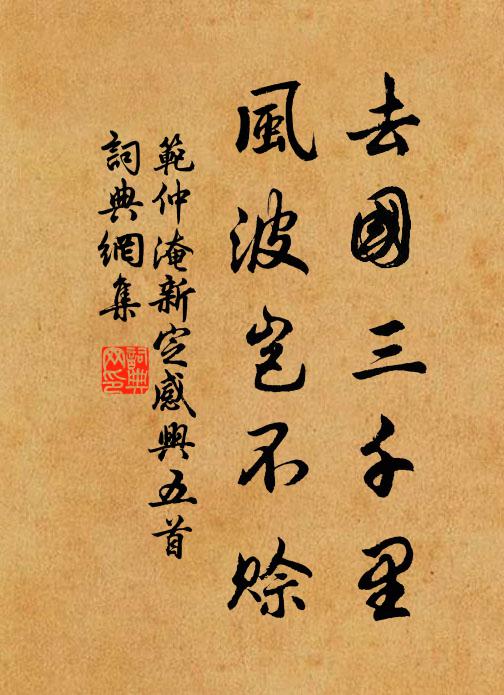 去國三千里
風波豈不賒
範仲淹新定感興五首
詞典網集
詞典網印